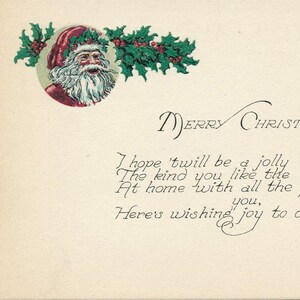 Merry Christ
I hope 'twill be a jolly
The kind you like the
At home with all the
you,
Here's wishing joy to